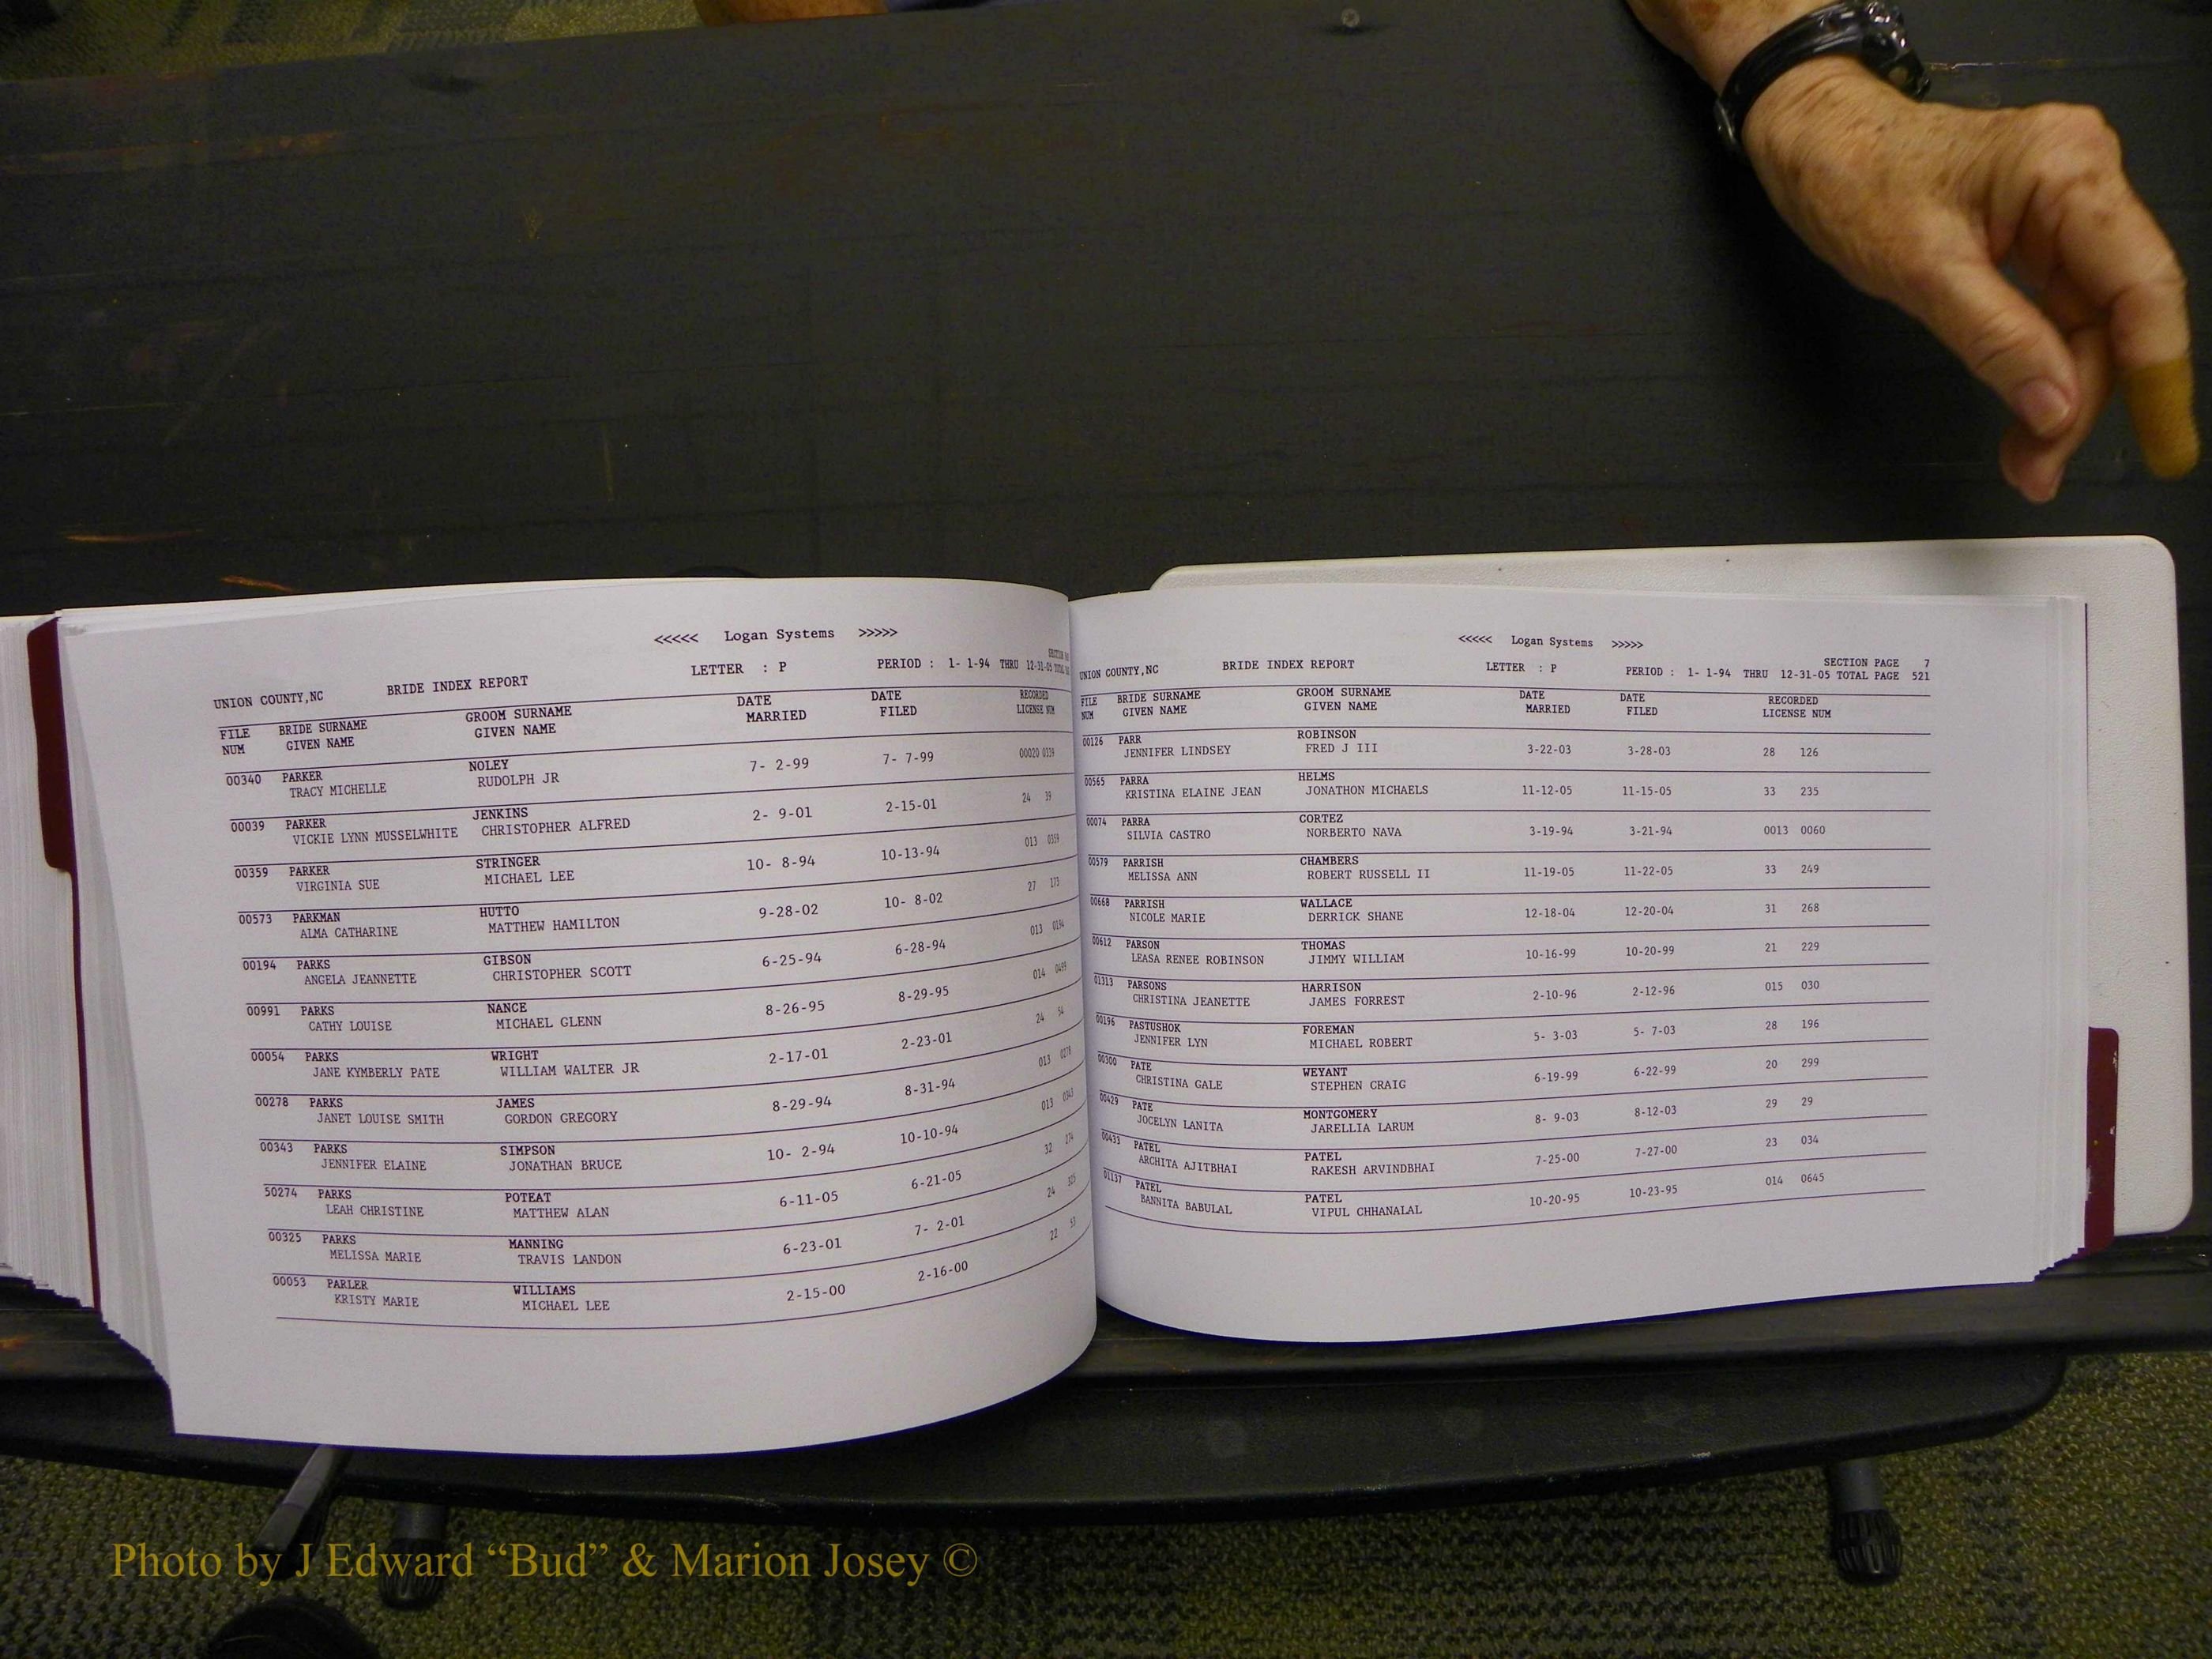 <<<<< Logan Systems >>>>>
UNION COUNTY,NC BRIDE INDEX REPORT LETTER : P PERIOD : 1- 1-94 THRU 12-31-05 TOTAL
FILE NUM BRIDE SURNAME GIVEN NAME GROOM SURNAME GIVEN NAME DATE MARRIED DATE FILED RECORDED LICENSE NUM
00340 PARKER NOLEY 7- 2-99 7- 7-99 00020 0339
TRACY MICHELLE RUDOLPH JR
00039 PARKER JENKINS 2- 9-01 2-15-01 24 39
VICKIE LYNN MUSSELWHITE CHRISTOPHER ALFRED
00359 PARKER STRINGER 10- 8-94 10-13-94 013 0359
VIRGINIA SUE MICHAEL LEE
00573 PARKMAN HUTTO 9-28-02 10- 8-02 27 173
ALMA CATHARINE MATTHEW HAMILTON
00194 PARKS GIBSON 6-25-94 6-28-94 013 0194
ANGELA JEANNETTE CHRISTOPHER SCOTT
00991 PARKS NANCE 8-26-95 8-29-95 014 0499
CATHY LOUISE MICHAEL GLENN
00054 PARKS WRIGHT 2-17-01 2-23-01 24 54
JANE KYMBERLY PATE WILLIAM WALTER JR
00278 PARKS JAMES 8-29-94 8-31-94 013 0278
JANET LOUISE SMITH GORDON GREGORY
00343 PARKS SIMPSON 10- 2-94 10-10-94 013 0343
JENNIFER ELAINE JONATHAN BRUCE
50274 PARKS POTEAT 6-11-05 6-21-05 32 274
LEAH CHRISTINE MATTHEW ALAN
00325 PARKS MANNING 6-23-01 7- 2-01 24 325
MELISSA MARIE TRAVIS LANDON
00053 PARLER WILLIAMS 2-15-00 2-16-00 22 53
KRISTY MARIE MICHAEL LEE
<<<<< Logan Systems >>>>>
SECTION PAGE 7
UNION COUNTY,NC BRIDE INDEX REPORT LETTER : P PERIOD : 1- 1-94 THRU 12-31-05 TOTAL PAGE 521
FILE NUM BRIDE SURNAME GIVEN NAME GROOM SURNAME GIVEN NAME DATE MARRIED DATE FILED RECORDED LICENSE NUM
00126 PARR ROBINSON 3-22-03 3-28-03 28 126
JENNIFER LINDSEY FRED J III
00565 PARRA HELMS 11-12-05 11-15-05 33 235
KRISTINA ELAINE JEAN JONATHON MICHAELS
00074 PARRA CORTEZ 3-19-94 3-21-94 0013 0060
SILVIA CASTRO NORBERTO NAVA
00579 PARRISH CHAMBERS 11-19-05 11-22-05 33 249
MELISSA ANN ROBERT RUSSELL II
00668 PARRISH WALLACE 12-18-04 12-20-04 31 268
NICOLE MARIE DERRICK SHANE
00612 PARSON THOMAS 10-16-99 10-20-99 21 229
LEASA RENEE ROBINSON JIMMY WILLIAM
01313 PARSONS HARRISON 2-10-96 2-12-96 015 030
CHRISTINA JEANETTE JAMES FORREST
00196 PASTUSHOK FOREMAN 5- 3-03 5- 7-03 28 196
JENNIFER LYN MICHAEL ROBERT
00300 PATE WEYANT 6-19-99 6-22-99 20 299
CHRISTINA GALE STEPHEN CRAIG
00429 PATE MONTGOMERY 8- 9-03 8-12-03 29 29
JOCELYN LANITA JARELLIA LARUM
00433 PATEL PATEL 7-25-00 7-27-00 23 034
ARCHITA AJITBHAI RAKESH ARVINDBHAI
01137 PATEL PATEL 10-20-95 10-23-95 014 0645
BANNITA BABULAL VIPUL CHHANALAL
Photo by J Edward “Bud” & Marion Josey ©